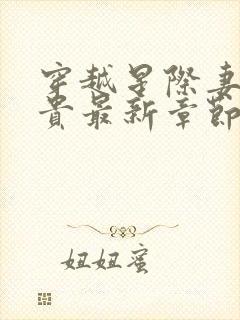 穿越星际妻
贵最新章節
妞妞蜜